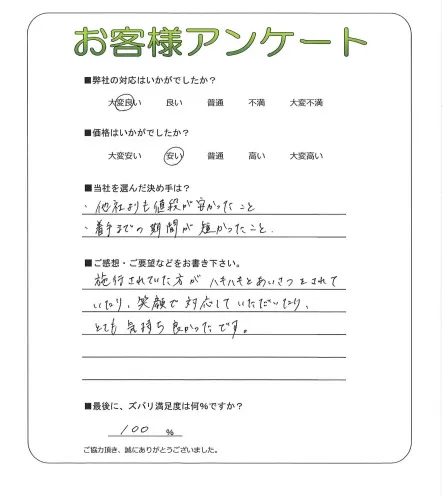 お客様アンケート
■弊社の対応はいかがでしたか？
大変良い 良い 普通 不満 大変不満
■価格はいかがでしたか？
大変安い 安い 普通 高い 大変高い
■当社を選んだ決め手は？
・他社よりも値段が安かったこと
・着手までの期間が短かったこと.
■ご感想・ご要望などをお書き下さい。
施行されていた方がハキハキとあいさつをされて
いたり、笑顔で対応していただいたり、
とても気持ち良かったです。
■最後に、ズバリ満足度は何％ですか？
100 ％
ご協力頂き、誠にありがとうございました。